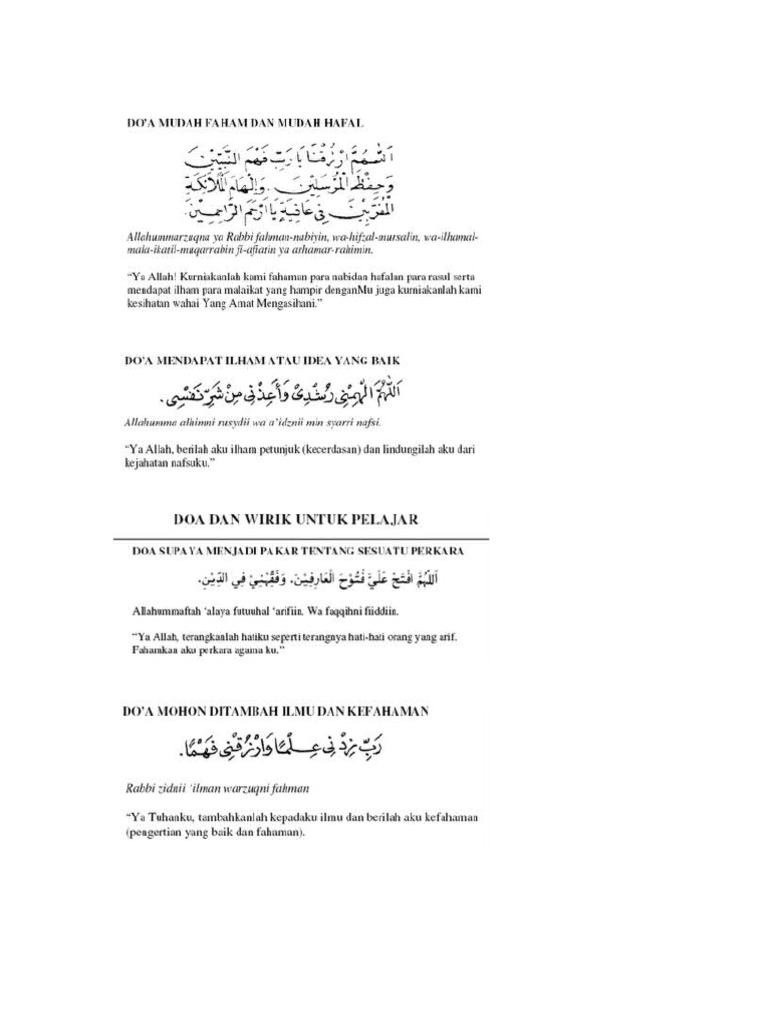 DO'A MUDAH FAHAM DAN MUDAH HAFAL
اَللّٰهُمَّ ارْزُقْنَا يَا رَبِّ فَهْمَ النَّبِيِّيْنَ
وَحِفْظَ الْمُرْسَلِيْنَ . وَاِلْهَامَ الْمَلَآئِكَةِ
الْمُقَرَّبِيْنَ فِى عَافِيَةٍ يَا اَرْحَمَ الرَّاحِمِيْنَ.
Allahummarzuqna ya Rabbi fahman-nabiyin, wa-hifzal-mursalin, wa-ilhamal-
mala-ikatil-muqarrabin fi-afiatin ya arhamar-rahimin.
“Ya Allah! Kurniakanlah kami fahaman para nabidan hafalan para rasul serta
mendapat ilham para malaikat yang hampir denganMu juga kurniakanlah kami
kesihatan wahai Yang Amat Mengasihani.”
DO'A MENDAPAT ILHAM ATAU IDEA YANG BAIK
اَللّٰهُمَّ اَلْهِمْنِى رُشْدِىْ وَأَعِذْنِى مِنْ شَرِّ نَفْسِى .
Allahumma alhimni rusydii wa a'idznii min syarri nafsi.
“Ya Allah, berilah aku ilham petunjuk (kecerdasan) dan lindungilah aku dari
kejahatan nafsuku.”
DOA DAN WIRIK UNTUK PELAJAR
DOA SUPAYA MENJADI PAKAR TENTANG SESUATU PERKARA
اَللّٰهُمَّ افْتَحْ عَلَيَّ فُتُوْحَ الْعَارِفِيْنَ. وَفَقِّهْنِيْ فِي الدِّيْنِ.
Allahummaftah ‘alaya futuuhal ‘arifiin. Wa faqqihni fiiddiin.
“Ya Allah, terangkanlah hatiku seperti terangnya hati-hati orang yang arif.
Fahamkan aku perkara agama ku.”
DO'A MOHON DITAMBAH ILMU DAN KEFAHAMAN
رَبِّ زِدْنِى عِلْمًا وَارْزُقْنِى فَهْمًا.
Rabbi zidnii ‘ilman warzuqni fahman
“Ya Tuhanku, tambahkanlah kepadaku ilmu dan berilah aku kefahaman
(pengertian yang baik dan fahaman).